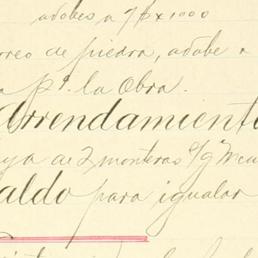 adobes a 7 $ x 1000
rreo de piedra, adobe a
a pª. la Obra.
Arrendamiento
ya de 2 monteras
aldo para igualar